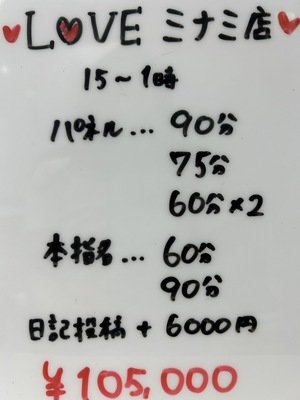 ♥LOVE ミナミ店♥
15～1時
パネル…90分
75分
60分×2
本指名…60分
90分
日記投稿 + 6000円
¥105,000